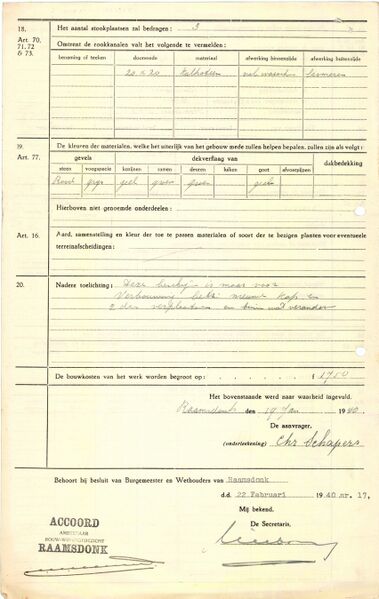 18.
Art. 70,
71, 72
& 73.
Het aantal stookplaatsen zal bedragen: 3
Omtrent de rookkanalen valt het volgende te vermelden:
benaming of teeken doorsnede materiaal afwerking binnenzijde afwerking buitenzijde
20 x 20
19.
Art. 77.
De kleuren der materialen, welke het uiterlijk van het gebouw mede zullen helpen bepalen, zullen zijn als volgt:
gevels dekverflaag van dakbedekking
steen voegspecie kozijnen ramen deuren luiken goot afvoerpijpen
Rood grijs geel groen groen geel
Hierboven niet genoemde onderdeelen:
Art. 16.
Aard, samenstelling en kleur der toe te passen materialen of soort der te bezigen planten voor eventueele
terreinafscheidingen:
20.
Nadere toelichting: Deze is maar voor
Verbouwing nieuwe kap en
verplaatsen en veranderen
De bouwkosten van het werk worden begroot op: f 1750
Het bovenstaande werd naar waarheid ingevuld.
Raamsdonk den 19 Jan 1940.
De aanvrager,
(onderteekening) Chr Schapers
Behoort bij besluit van Burgemeester en Wethouders van Raamsdonk
d.d. 22 Februari 1940 nr. 17.
Mij bekend.
De Secretaris,
ACCOORD
AMBTENAAR
BOUW- EN WONINGTOEZICHT
RAAMSDONK